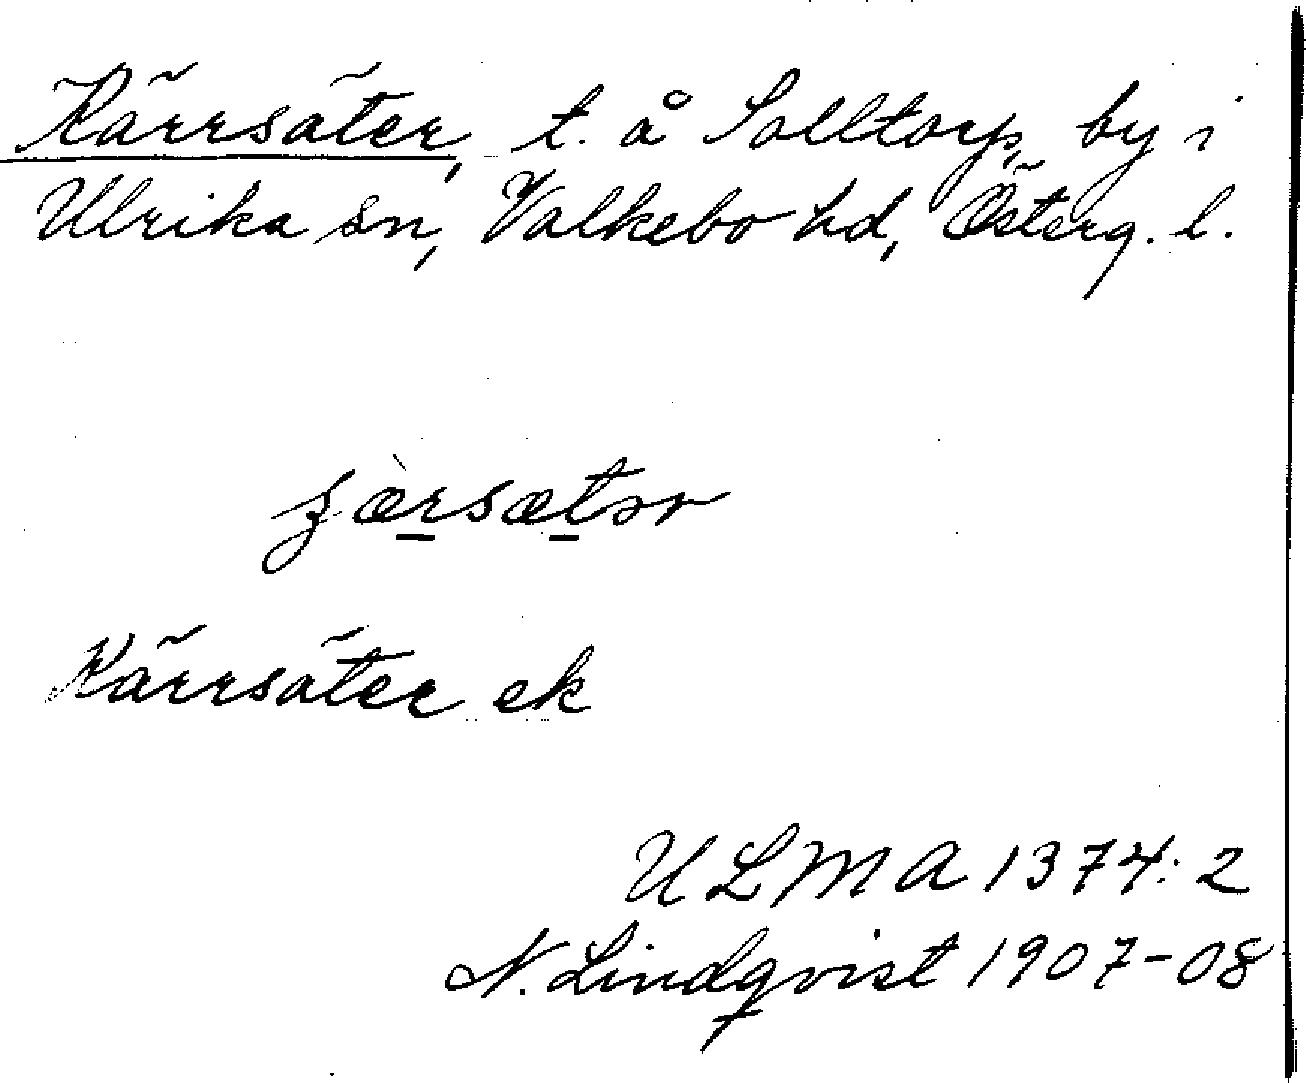 Kärrsäter, t. å Solltorp, by i
Ulrika sn, Valkebo hd, Österg. l.
Kärrsäter ek
ULMA 1374:2
N. Lindqvist 1907-08